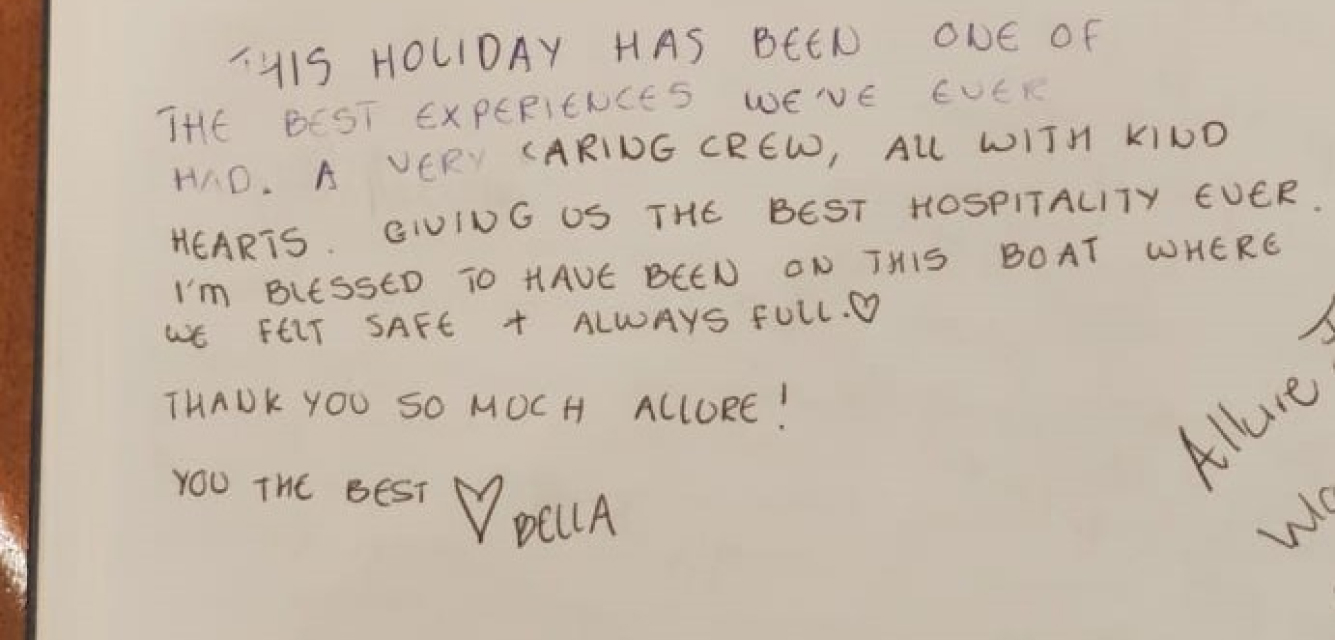 THIS HOLIDAY HAS BEEN ONE OF
THE BEST EXPERIENCES WE'VE EVER
HAD. A VERY CARING CREW, ALL WITH KIND
HEARTS. GIVING US THE BEST HOSPITALITY EVER.
I'm BLESSED TO HAVE BEEN ON THIS BOAT WHERE
WE FELT SAFE + ALWAYS FULL.♡
THANK YOU SO MUCH ALLURE!
YOU THE BEST ♡ BELLA
Allure